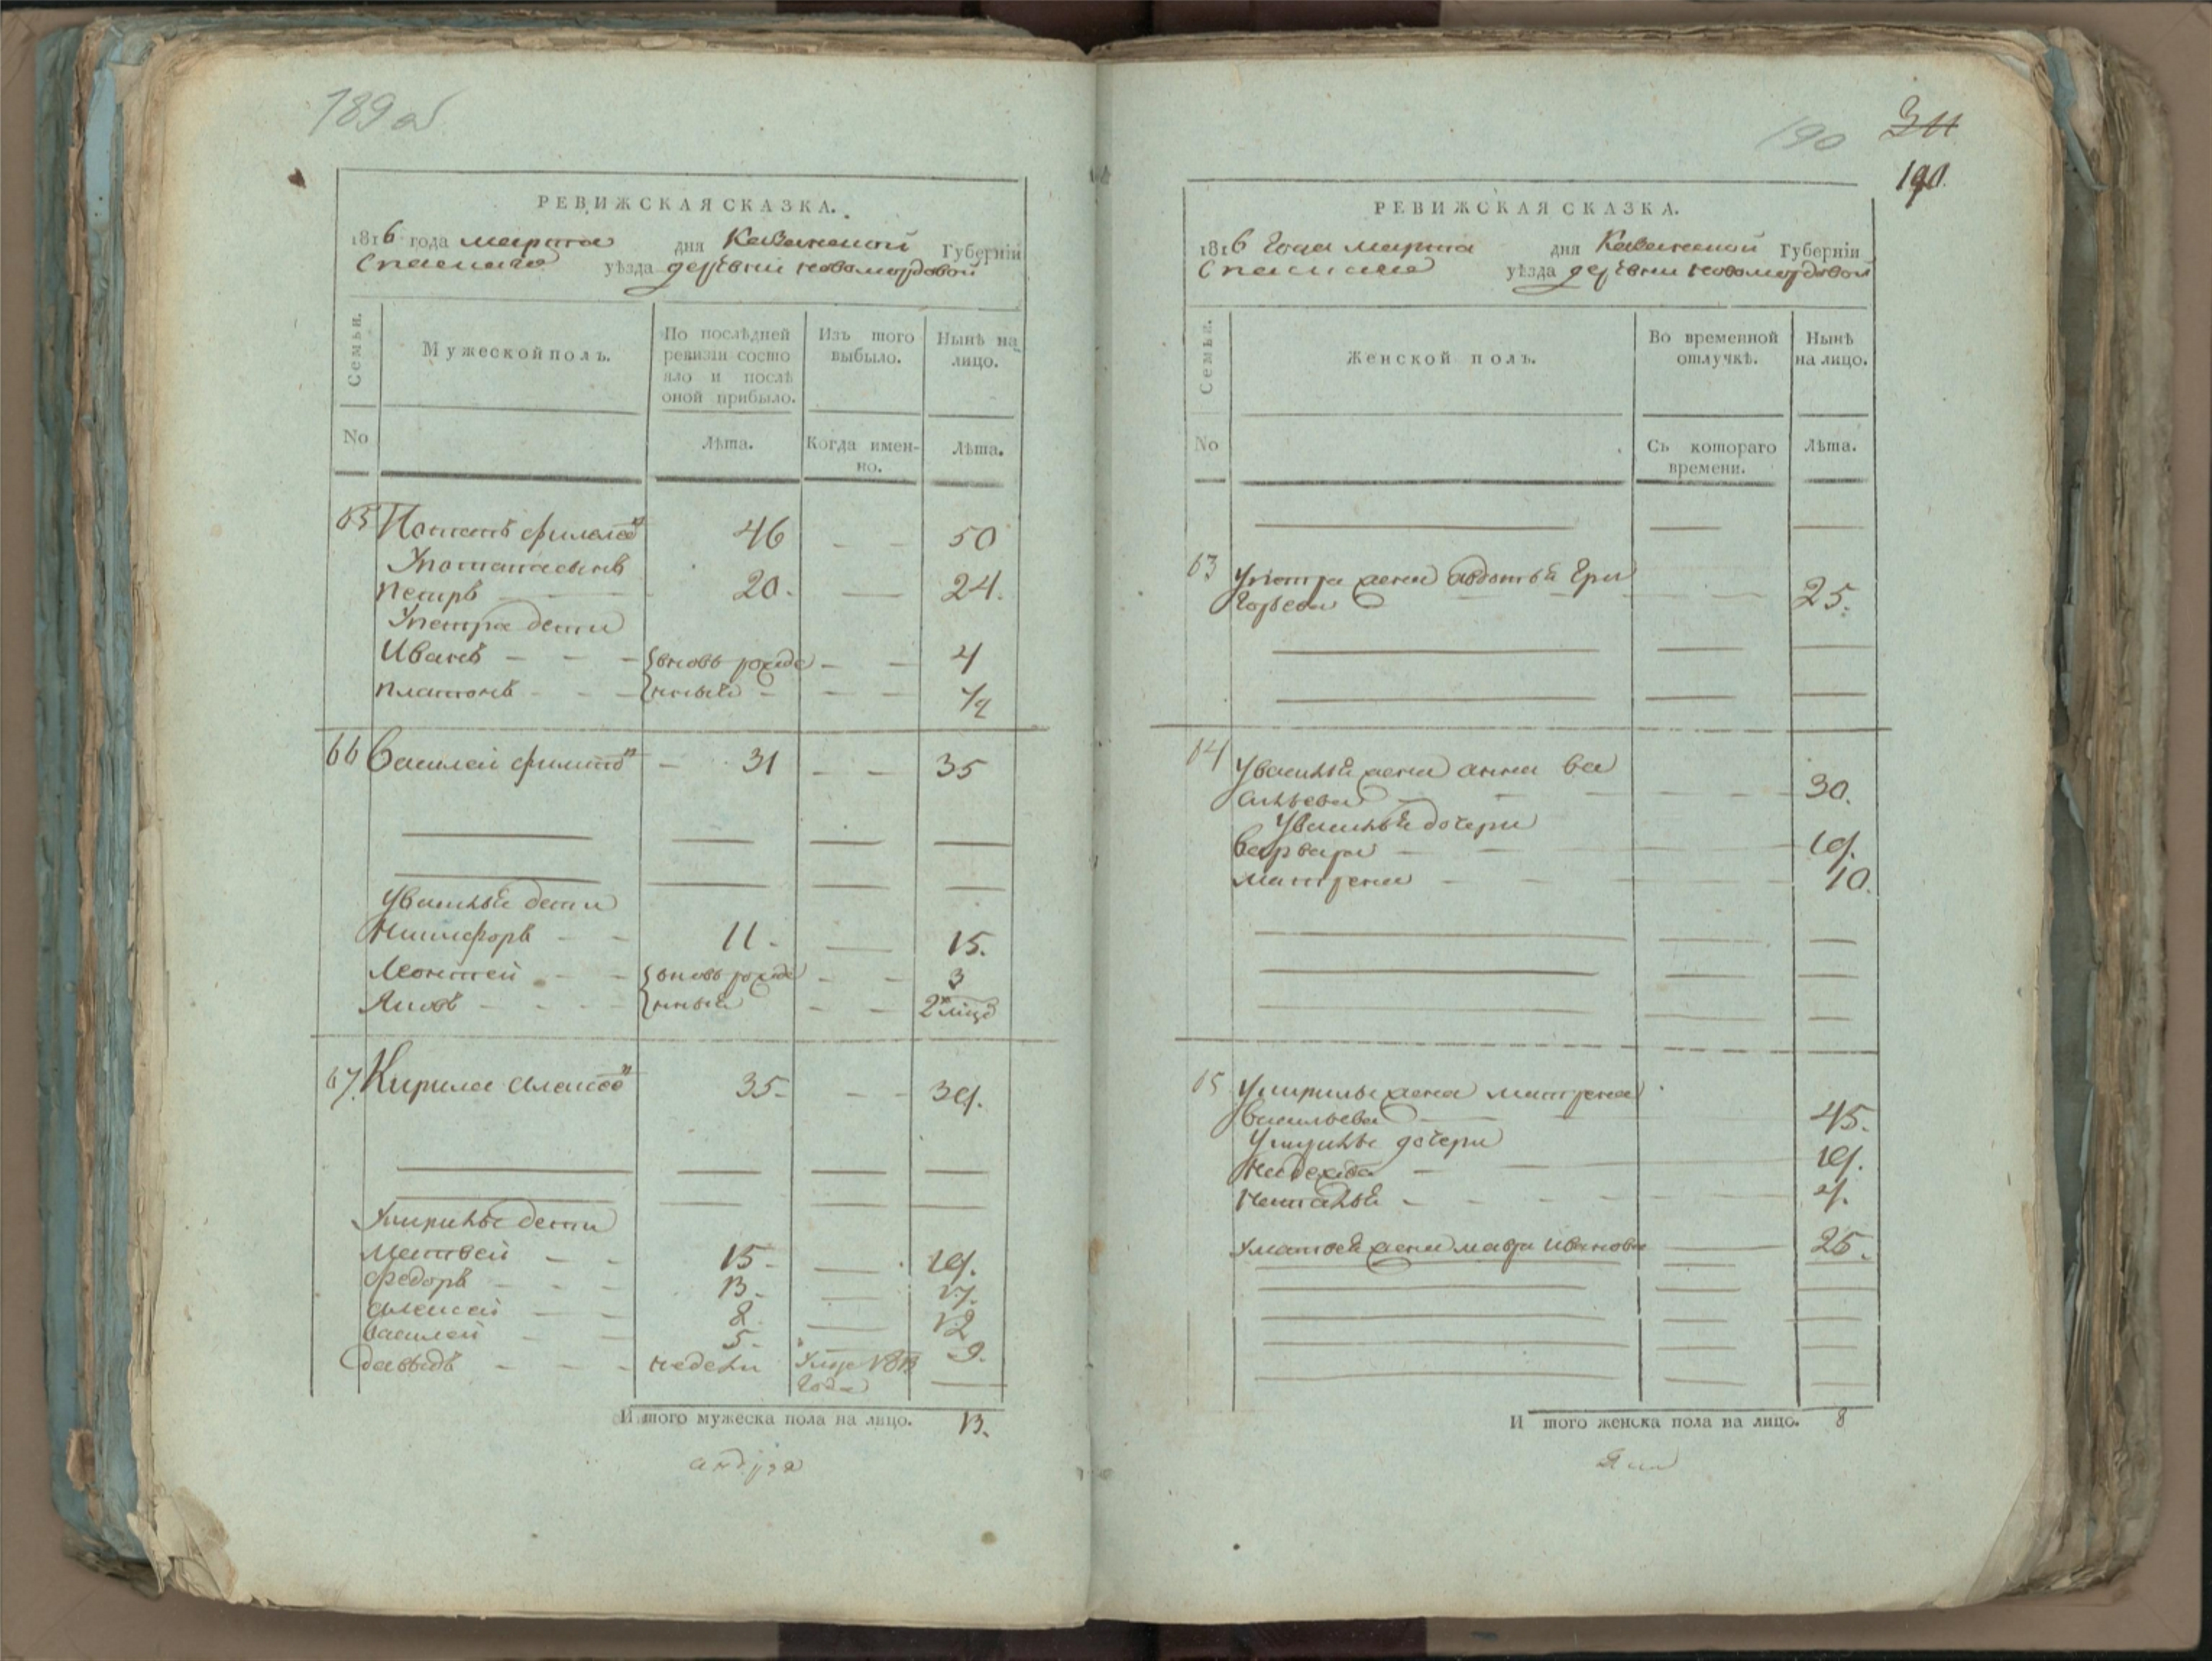 189 об
РЕВИЖСКАЯ СКАЗКА.
1816 года марта дня Казанской Губерніи
Спаскаго уѣзда деревни новомордовой
Семьи. Мужеской полъ. По послѣдней ревизіи состояло и послѣ оной прибыло. Изъ того выбыло. Нынѣ на лицо.
No Лѣта. Когда именно. Лѣта.
65 Потапъ филипов 46 — — 50
У потапа сынъ
петръ — 20. — 24.
У петра дети
Иванъ — — — вновь рожде — — 4
платонъ — — — нныя — — — 1/2
66 Василей филипов — 31 — — 35
У василья дети
Никифоръ — — 11. — 15.
— — вновь рожде — — 3
Яковъ — — — нныя — — 2
67. Кирила 35. — — 39.
У кирилы дети
Матвей — — 15. — 19.
Федоръ — — — 13. — 17.
алексей — — 8. — 12
василей — — 5. 9.
давыдъ — — — недели 1813
года —
И того мужеска пола на лицо. 13.
190
311
190.
РЕВИЖСКАЯ СКАЗКА.
1816 года марта дня Казанской Губерніи
Спаскаго уѣзда деревни новомордовой
Семьи. Женской полъ. Во временной отлучкѣ. Нынѣ на лицо.
No Съ котораго времени. Лѣта.
63 У петра жена авдотья гри
горьева — — — 25.
64 У василья жена анна ва
сильева — — — — — 30.
У василья дочери
варвара — — — 19.
матрена — — — 10.
65 У кирилы жена матрена
васильева — — 45.
У кирилы дочери
Надежда — — 19.
Наталья — — — — — 4.
У матвея жена мавра Иванова — 25.
И того женска пола на лицо. 8